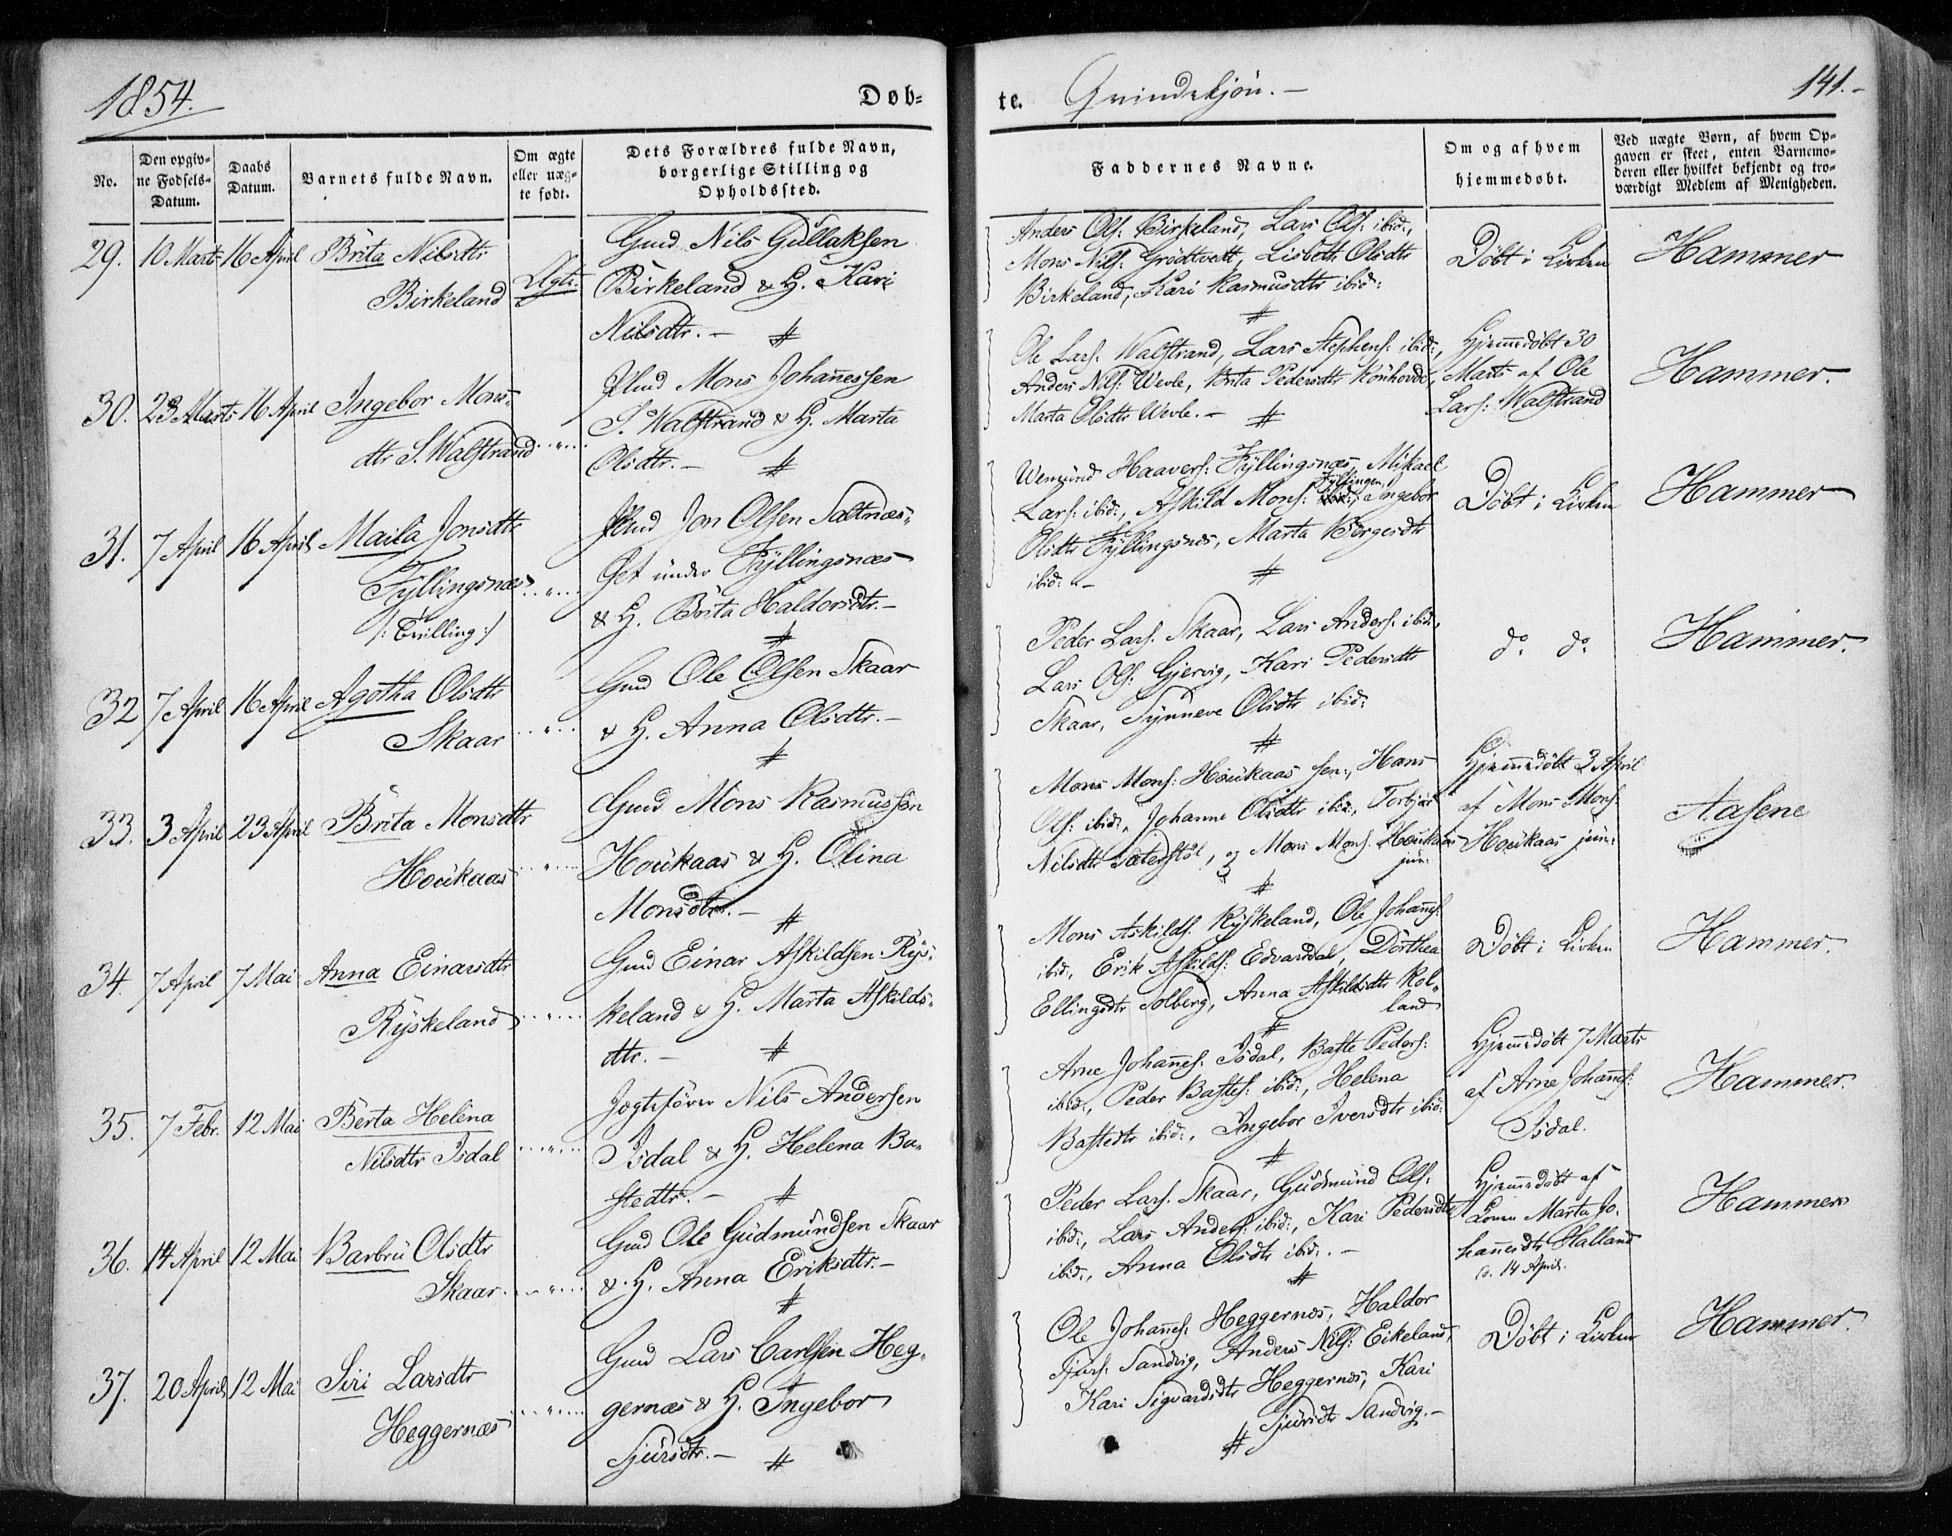 1854.
Døb-
te. Qvindekjön.-
141.-
No.
Den opgiv-
ne Fødsels-
Datum.
Daabs
Datum.
Barnets fulde Navn.
Om ægte
eller uæg-
te født.
Dets Forældres fulde Navn,
borgerlige Stilling og
Opholdssted.
Faddernes Navne.
Om og af hvem
hjemmedøbt.
Ved uægte Børn, af hvem Op-
gaven er skeet, enten Barnemo-
deren eller hvilket bekjendt og tro-
værdigt Medlem af Menigheden.
29. 10 Marts 16 April Brita Nilsdtr
Birkeland Ægte.
Gmd Nils Gullaksen
Birkeland & H. Kari
Nilsdtr.-
Anders Ols: Birkeland, Lars Ols: ibid:,
Mons Nils: Grödtvett, Lisbeth Olsdtr
Birkeland, Kari Rasmusdtr ibid:
Döbt i Kirken
Hammer
30. 23 Marts 16 April Ingebor Mons-
dtr S. Walstrand
Mons Johanessen
S. Walstrand & H. Marta
Olsdtr.-
Ole Lars: Walstrand, Lars Stephens: ibid:,
Anders Nils: Wevle, Brita Pedersdtr Rönhovde,
Marta Olsdtr Wevle.-
Hjemmedöbt 30
Marts af Ole
Lars: Walstrand
Hammer.
31. 7 April 16 April Maila Jonsdtr
Fyllingsnæs
/: Tvilling :/
Jon Olsen Saltnes-
Get under Fyllingsnæs
& H. Brita Haldorsdtr.-
Haavers: Fyllingsnæs, Mikael
Lars: ibid:, Askild Mons: Fyllingen, Ingebor
Olsdtr Fyllingsnes, Marta Börgesdtr
ibid:-
Döbt i Kirken
Hammer
32 7 April 16 April Agotha Olsdtr
Skaar
Gmd Ole Olsen Skaar
& H. Anna Olsdtr.-
Peder Lars: Skaar, Lars Anders: ibid:,
Lars Ols: Gjervig, Kari Pedersdtr
Skaar, Synneve Olsdtr ibid:
do do
Hammer.
33. 3 April 23 April Brita Monsdtr
Houkaas
Gmd Mons Rasmussen
Houkaas & H. Olina
Monsdtr.-
Mons Mons: Houkaas sen:, Hans
Ols: ibid:, Johanne Olsdtr ibid:, Torbjör
Nilsdtr Sæterstöl, og Mons Mons: Houkaas
jun:
Hjemmedöbt 3 April
af Mons Mons:
Houkaas jun:
Aasene
34. 7 April 7 Mai Anna Einarsdtr
Ryskeland
Gmd Einar Askildsen Rys-
keland & H. Marta Askilds-
dtr.-
Mons Askilds: Ryskeland, Ole Johanes:
ibid:, Erik Askilds: Edvardal, Dorthea
Ellingsdtr Solberg, Anna Askildsdtr Rol-
land
Döbt i Kirken
Hammer.
35. 7 Febr. 12 Mai Berta Helena
Nilsdtr Isdal
Jagtefører Nils Andersen
Isdal & H. Helena Ba-
stedtr.-
Arne Johanes: Isdal, Baste Peders:
ibid:, Peder Bastes: ibid:, Helena
Bastedtr ibid:, Ingebor Iversdtr ibid:
Hjemmedöbt 7 Marts
af Arne Johanes:
Isdal.
Hammer.
36. 14 April 12 Mai Barbru Olsdtr
Skaar
Gmd Ole Gudmundsen Skaar
& H. Anna Eriksdtr.-
Peder Lars: Skaar, Gudmund Ols:
ibid:, Lars Anders: ibid:, Kari Pedersdtr
ibid:, Anna Olsdtr ibid:.-
Hjemmedöbt af
Konen Marta Jo-
hannesdtr Halland
d. 14 April.
Hammer
37. 20 April 12 Mai Siri Larsdtr
Heggernæs
Gmd Lars Carlsen Heg-
gernæs & H. Ingebor
Sjursdtr.-
Ole Johanes: Heggernes, Haldor
Sjurs: Sandvig, Anders Nils: Eikeland,
Kari Sigvardsdtr Heggernes, Kari
Sjursdtr Sandvig.-
Döbt i Kirken
Hammer.